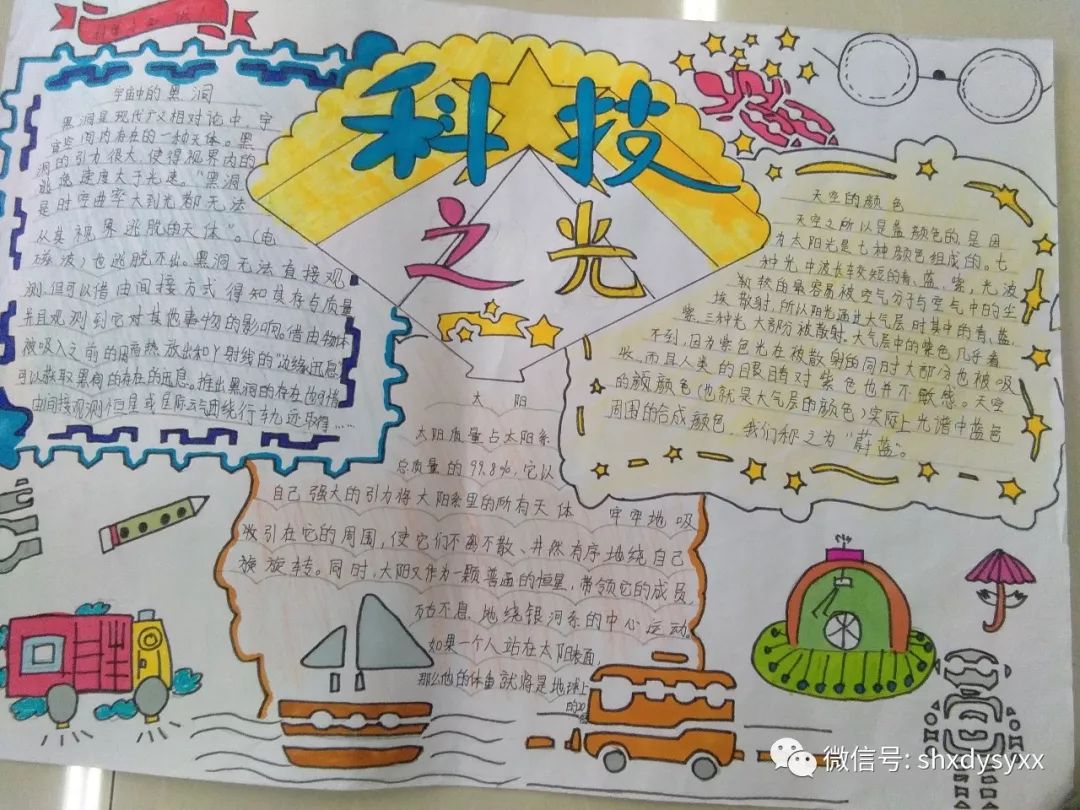 科技
之光
宇宙中的黑洞
黑洞是现代广义相对论中,宇
宙空间内存在的一种天体。黑
洞的引力很大,使得视界内的
逃逸速度大于光速。“黑洞
是时空曲率大到光都无法
从其视界逃脱的天体”。(电
磁波)也逃脱不出。黑洞无法直接观
测,但可以借由间接方式得知其存在与质量
并且观测到它对其他事物的影响。借由物体
被吸入之前的因高热放出和γ射线的“边缘讯息”
可以获取黑洞的存在的讯息。推出黑洞的存在也可借
由间接观测恒星或星际云气团绕行轨迹取得……
太阳
太阳质量占太阳系
总质量的99.8%,它以
自己强大的引力将太阳系里的所有天体 牢牢地吸
引在它的周围,使它们不离不散、井然有序地绕自己
旋转。同时,太阳又作为一颗普通的恒星,带领它的成员,
万古不息地绕银河系的中心运动。
如果一个人站在太阳表面,
那么他的体重就将是地球上
的20倍
天空的颜色
天空之所以是蓝颜色的,是因
为太阳光是七种颜色组成的。七
种光中波长较短的青、蓝、紫,光波
较短的最容易被空气分子与空气中的尘
埃散射,所以阳光通过大气层时其中的青、蓝、
紫三种光大部分被散射。大气层中的紫色几乎看
不到,因为紫色光在被散射的同时大部分也被吸
收,而且人类的眼睛对紫色也并不敏感。天空
的颜颜色(也就是大气层的颜色)实际上光谱中蓝色
周围的合成颜色,我们称之为“蔚蓝”。
微信号: shxdysyxx